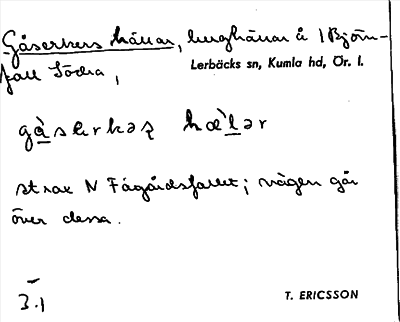 Gåserkers hällar, berghällar å 1 Björn-
fall Södra,
Lerbäcks sn, Kumla hd, Ör. l.
gå̀serkəʒ hæ̀lər
strax N Fågårdsfallet; vägen går
över dessa.
3.1
T. ERICSSON